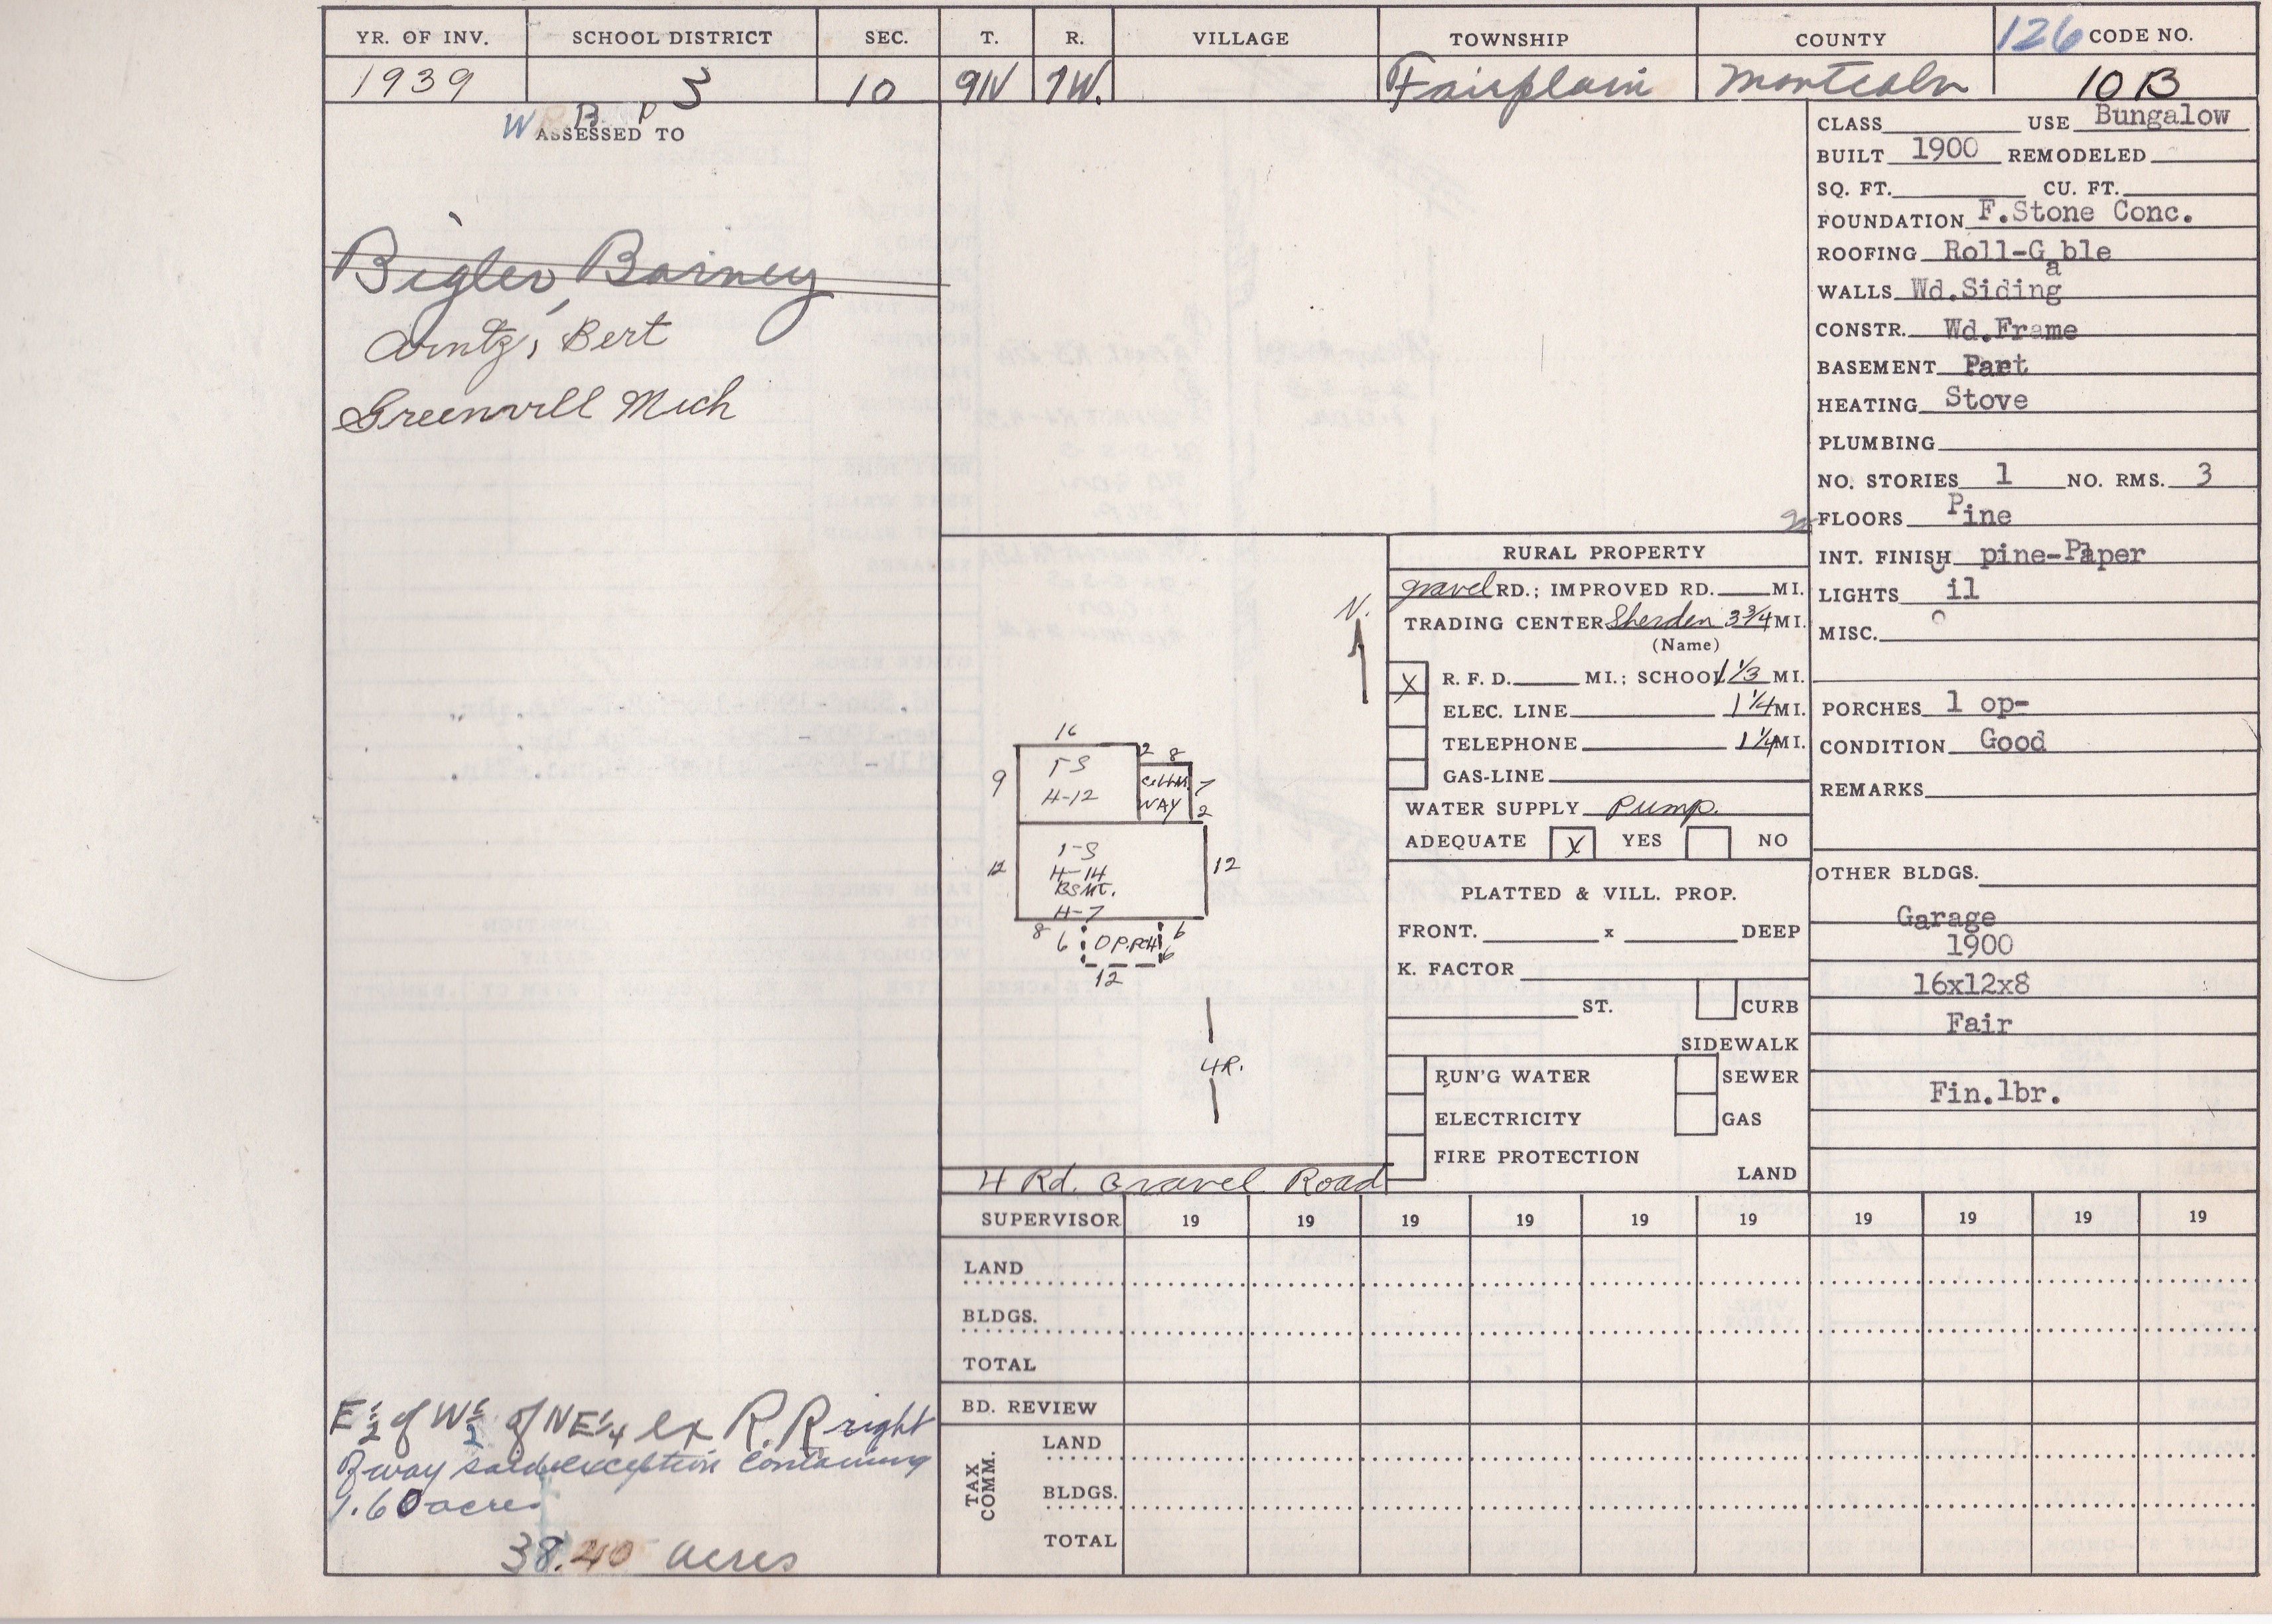 YR. OF INV. SCHOOL DISTRICT SEC. T. R. VILLAGE TOWNSHIP COUNTY 126 CODE NO.
1939 3 10 9N 7W. Fairplain Montcalm 10 B
W B P
ASSESSED TO
Bigler, Barney
Arntz, Bert
Greenvill Mich
E 1/2 of W 1/2 of NE 1/4 ex R.R right
of way said exception containing
1.60 acres
38.40 acres
CLASS USE Bungalow
BUILT 1900 REMODELED
SQ. FT. CU. FT.
FOUNDATION F.Stone Conc.
ROOFING Roll-Gable
WALLS Wd.Siding
CONSTR. Wd.Frame
BASEMENT Part
HEATING Stove
PLUMBING
NO. STORIES 1 NO. RMS. 3
FLOORS Pine
INT. FINISH pine-Paper
LIGHTS Oil
MISC.
PORCHES 1 op-
CONDITION Good
REMARKS
OTHER BLDGS.
Garage
1900
16x12x8
Fair
Fin.lbr.
N.
16
9 1-S 2 8
H-12 CELLAR 7
WAY 2
12 1-S 12
H-14
BSMT.
H-7
8 6 OP.PCH 6
6
12
4R.
4 Rd. Gravel Road
RURAL PROPERTY
gravel RD.; IMPROVED RD. MI.
TRADING CENTER Sherden 3 3/4 MI.
(Name)
X R. F. D. MI.; SCHOOL 1 1/3 MI.
ELEC. LINE 1 1/4 MI.
TELEPHONE 1 1/4 MI.
GAS-LINE
WATER SUPPLY Pump.
ADEQUATE X YES NO
PLATTED & VILL. PROP.
FRONT. x DEEP
K. FACTOR
ST. CURB
SIDEWALK
RUN'G WATER SEWER
ELECTRICITY GAS
FIRE PROTECTION
LAND
SUPERVISOR 19 19 19 19 19 19 19 19 19 19
LAND
BLDGS.
TOTAL
BD. REVIEW
TAX COMM.
LAND
BLDGS.
TOTAL